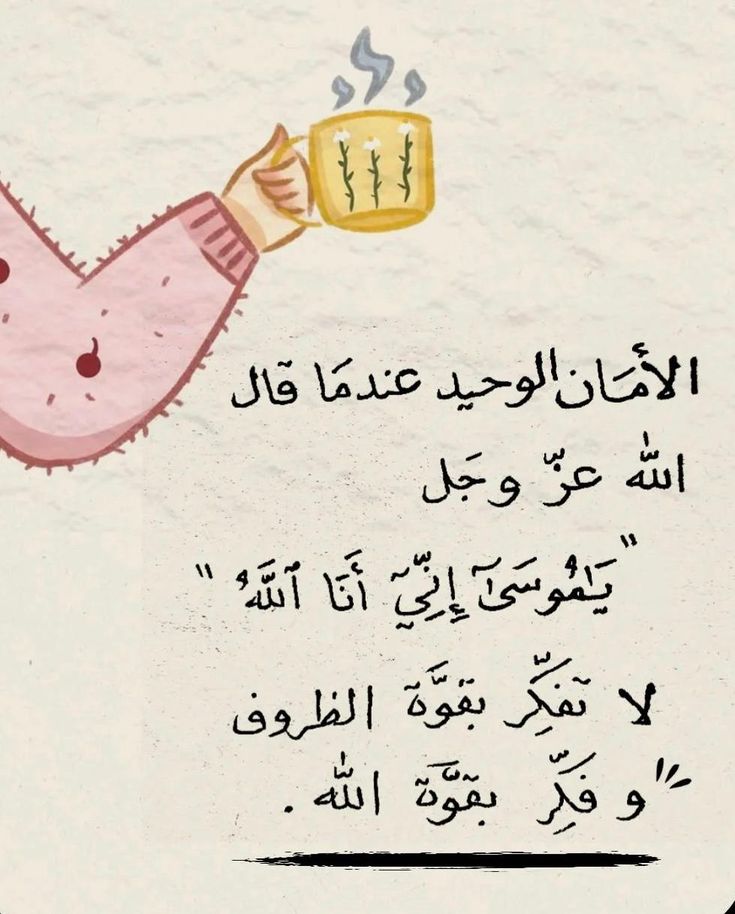 الأمَان الوحيد عندمَا قال
الله عزّ وجَل
"يَٰمُوسَىٰٓ إِنِّيٓ أَنَا ٱللَّهُ"
لا تفكِّر بقوَّة الظروف
و فكِّر بقوَّة الله.